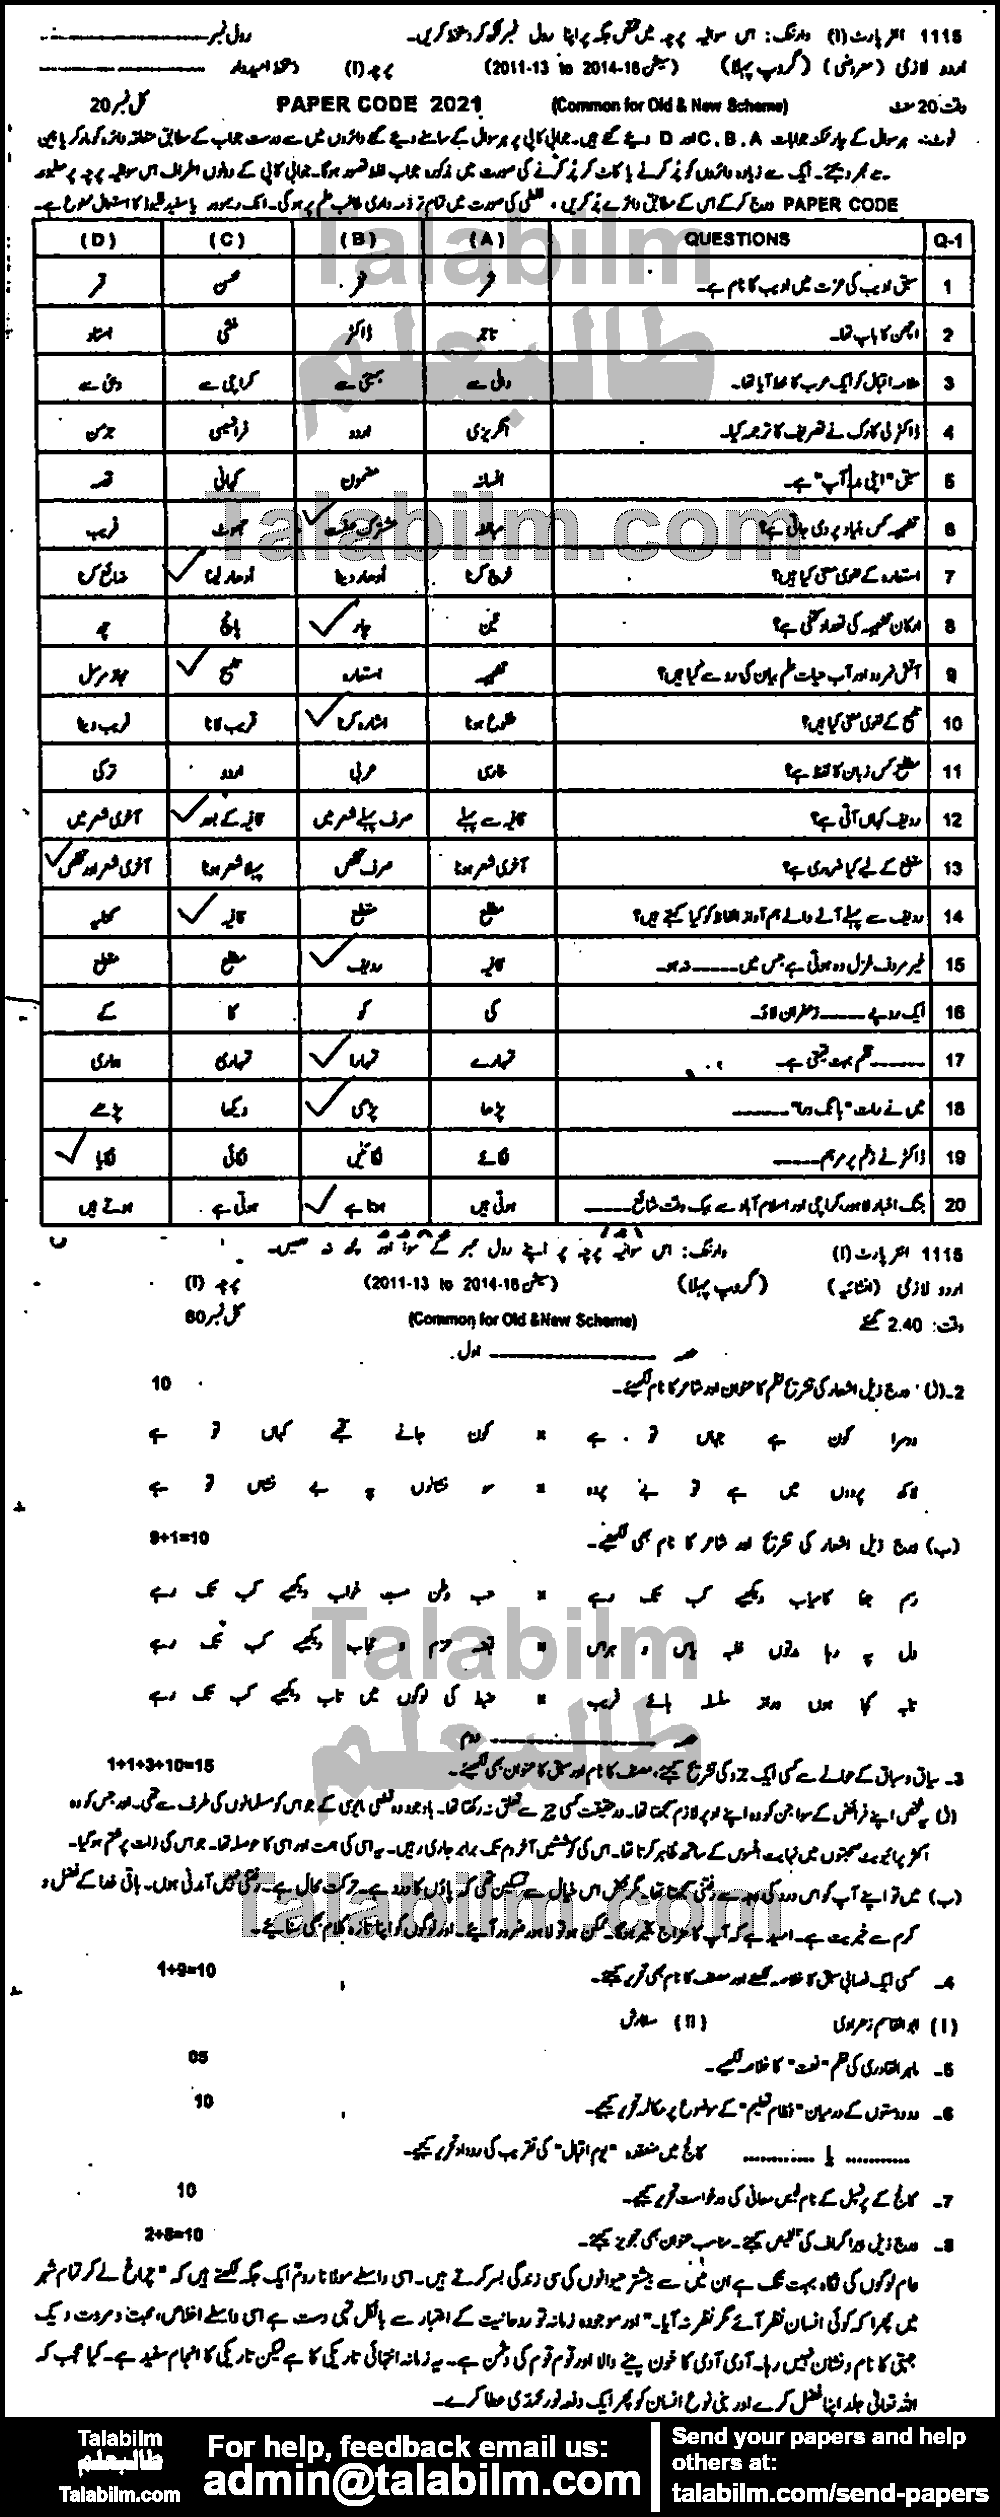 1115 انٹر پارٹ (I) وارننگ: اس سوالیہ پرچہ میں مختص جگہ پر اپنا رول نمبر لکھ کر دستخط کریں۔ رول نمبر
اردو لازمی (معروضی) (گروپ پہلا) (سیشن 2011-13 to 2014-16) پرچہ (I) دستخط امیدوار
وقت 20 منٹ (Common for Old & New Scheme) PAPER CODE 2021 کل نمبر 20
نوٹ: ہر سوال کے چار ممکنہ جوابات A, B, C اور D دیے گئے ہیں۔ جوابی کاپی پر ہر سوال کے سامنے دیے گئے دائروں میں سے درست جواب کے مطابق متعلقہ دائرہ کو مارکر یا پین
سے بھر دیجئے۔ ایک سے زیادہ دائروں کو پُر کرنے یا کاٹ کر پُر کرنے کی صورت میں مذکورہ جواب غلط تصور ہوگا۔ جوابی کاپی کے دونوں اطراف اس سوالیہ پرچہ پر مطبوعہ
PAPER CODE درج کر کے اس کے مطابق دائرے پُر کریں، غلطی کی صورت میں تمام تر ذمہ داری طالب علم پر ہوگی۔ انک ریموور یا سفید فلیوڈ کا استعمال ممنوع ہے۔
Q-1 QUESTIONS (A) (B) (C) (D)
1 سبق ادیب کی عزت میں ادیب کا نام ہے۔ محسن قمر
2 اچھن کا باپ تھا۔ تاجر ڈاکٹر منشی استاد
3 علامہ اقبال کو ایک عرب کا خط آیا تھا۔ دہلی سے بمبئی سے کراچی سے دبئی سے
4 ڈاکٹر لی کلرک نے تصریف کا ترجمہ کیا۔ انگریزی اردو فرانسیسی جرمن
5 سبق "اپنی مدد آپ" ہے۔ افسانہ مضمون کہانی قصہ
6 تشبیہ کس بنیاد پر دی جاتی ہے؟ مبالغہ مشترک صفت جھوٹ فریب
7 استعارہ کے لغوی معنی کیا ہیں؟ خرچ کرنا اُدھار دینا اُدھار لینا ضائع کرنا
8 ارکان تشبیہ کی تعداد کتنی ہے؟ تین چار پانچ چھ
9 آتش نمرود اور آب حیات علم بیان کی رو سے کیا ہیں؟ تشبیہ استعارہ تلمیح مجاز مرسل
10 تلمیح کے لغوی معنی کیا ہیں؟ طلوع ہونا اشارہ کرنا قریب لانا فریب دینا
11 مطلع کس زبان کا لفظ ہے؟ فارسی عربی اردو ترکی
12 ردیف کہاں آتی ہے؟ قافیہ سے پہلے صرف پہلے شعر میں قافیہ کے بعد آخری شعر میں
13 مقطع کے لیے کیا ضروری ہے؟ آخری شعر ہونا صرف تخلص پہلا شعر ہونا آخری شعر اور تخلص
14 ردیف سے پہلے آنے والے ہم آواز الفاظ کو کیا کہتے ہیں؟ مطلع مقطع قافیہ کنایہ
15 غیر مردف غزل وہ ہوتی ہے جس میں ------ نہ ہو۔ قافیہ ردیف مطلع مقطع
16 ایک روپے ------ زعفران لاؤ۔ کی کو کا کے
17 ------ قلم بہت قیمتی ہے۔ تمہارے تمہارا تمہاری ہماری
18 میں نے رات "بانگ درا" ------ پڑھا پڑھی دیکھا پڑھے
19 ڈاکٹر نے زخم پر مرہم ------ لگائے لگائیں لگائی لگایا
20 جنگ اخبار لاہور، کراچی اور اسلام آباد سے بیک وقت شائع ------ ہوتی ہیں ہوتا ہے ہوتی ہے ہوتے ہیں
1115 انٹر پارٹ (I) وارننگ: اس سوالیہ پرچہ پر اپنے رول نمبر کے سوا اور کچھ نہ لکھیں۔
اردو لازمی (انشائیہ) (گروپ پہلا) (سیشن 2011-13 to 2014-16) پرچہ (I)
وقت: 2.40 گھنٹے (Common for Old &New Scheme) کل نمبر 80
حصہ اول
2۔(ا) درج ذیل اشعار کی تشریح نظم کا عنوان اور شاعر کا نام لکھیے۔ 10
دوسرا کون ہے جہاں تو ہے × کون جانے تجھے کہاں تو ہے
لاکھ پردوں میں ہے تو بے پردہ × سو نشانوں پہ بے نشاں تو ہے
(ب) درج ذیل اشعار کی تشریح اور شاعر کا نام بھی لکھیے۔ 9+1=10
رسم جفا کامیاب دیکھیے کب تک رہے × حب وطن مست خواب دیکھیے کب تک رہے
دل پہ رہا مدتوں غلبہ یاس و ہراس × قبضہ حزم و حجاب دیکھیے کب تک رہے
تابہ کجا ہوں دراز سلسلہ ہائے فریب × ضبط کی لوگوں میں تاب دیکھیے کب تک رہے
حصہ دوم
3۔ سیاق و سباق کے حوالے سے کسی ایک جزو کی تشریح کیجئے، مصنف کا نام اور سبق کا عنوان بھی لکھیے۔ 1+1+3+10=15
(ا) یہ شخص اپنے فرائض کے سوا جن کو وہ اپنے اوپر لازم سمجھتا تھا۔ درحقیقت کسی چیز سے تعلق نہ رکھتا تھا۔ باوجود وہ قطعی مایوسی کے جو اس کو مسلمانوں کی طرف سے تھی۔ اور جس کو وہ
اکثر پرائیویٹ صحبتوں میں نہایت افسوس کے ساتھ ظاہر کرتا تھا۔ اس کی کوششیں آخر دم تک برابر جاری رہیں۔ یہ اسی کی ہمت اور اسی کا حوصلہ تھا۔ جو اس کی ذات پر ختم ہوگیا۔
(ب) میں تو اپنے آپ کو اس درد کی وجہ سے رفتنی سمجھتا تھا۔ مگر محض اس خیال سے تسکین تھی کہ پاؤں کا درد ہے۔ حرکت محال ہے۔ رفتنی نہیں آمدنی ہوں۔ باقی خدا کے فضل و
کرم سے خیریت ہے۔ امید ہے کہ آپ کا مزاج بخیر ہوگا۔ ممکن ہو تو لاہور ضرور آیئے۔ اور لوگوں کو اپنا تازہ کلام بھی سنایئے۔
4۔ کسی ایک نصابی سبق کا خلاصہ لکھیے اور مصنف کا نام بھی تحریر کیجئے۔ 1+9=10
(I) ابو القاسم زہراوی (II) سفارش
5۔ ماہر القادری کی نظم "نعت" کا خلاصہ لکھیے۔ 05
6۔ دو دوستوں کے درمیان "نظام تعلیم" کے موضوع پر مکالمہ تحریر کیجیے۔ 10
.......... یا .......... کالج میں منعقدہ "یوم اقبال" کی تقریب کی روداد تحریر کیجیے۔
7۔ کالج کے پرنسپل کے نام فیس معافی کی درخواست تحریر کیجیے۔ 10
8۔ درج ذیل پیراگراف کی تلخیص کیجئے۔ مناسب عنوان بھی تجویز کیجئے۔ 2+8=10
عام لوگوں کی نگاہ بہت تنگ ہے ان میں سے بیشتر حیوانوں کی سی زندگی بسر کرتے ہیں۔ اسی واسطے مولانا روم ایک جگہ لکھتے ہیں کہ "چراغ لے کر تمام شہر
میں پھرا کہ کوئی انسان نظر آئے مگر نظر نہ آیا۔" اور موجودہ زمانہ تو روحانیت کے اعتبار سے بالکل تہی دست ہے اسی واسطے اخلاص، محبت و مروت و یک
جہتی کا نام و نشان نہیں رہا۔ آدمی آدمی کا خون پینے والا اور قوم قوم کی دشمن ہے۔ یہ زمانہ انتہائی تاریکی کا ہے لیکن تاریکی کا انجام سفید ہے۔ کیا عجب کہ
اللہ تعالیٰ جلد اپنا فضل کرے اور بنی نوع انسان کو پھر ایک دفعہ نور محمدی عطا کرے۔
Talabilm
طالبعلم
Talabilm.com
Talabilm
طالبعلم
Talabilm.com
Talabilm
طالبعلم
Talabilm.com
For help, feedback email us:
admin@talabilm.com
Send your papers and help
others at:
talabilm.com/send-papers